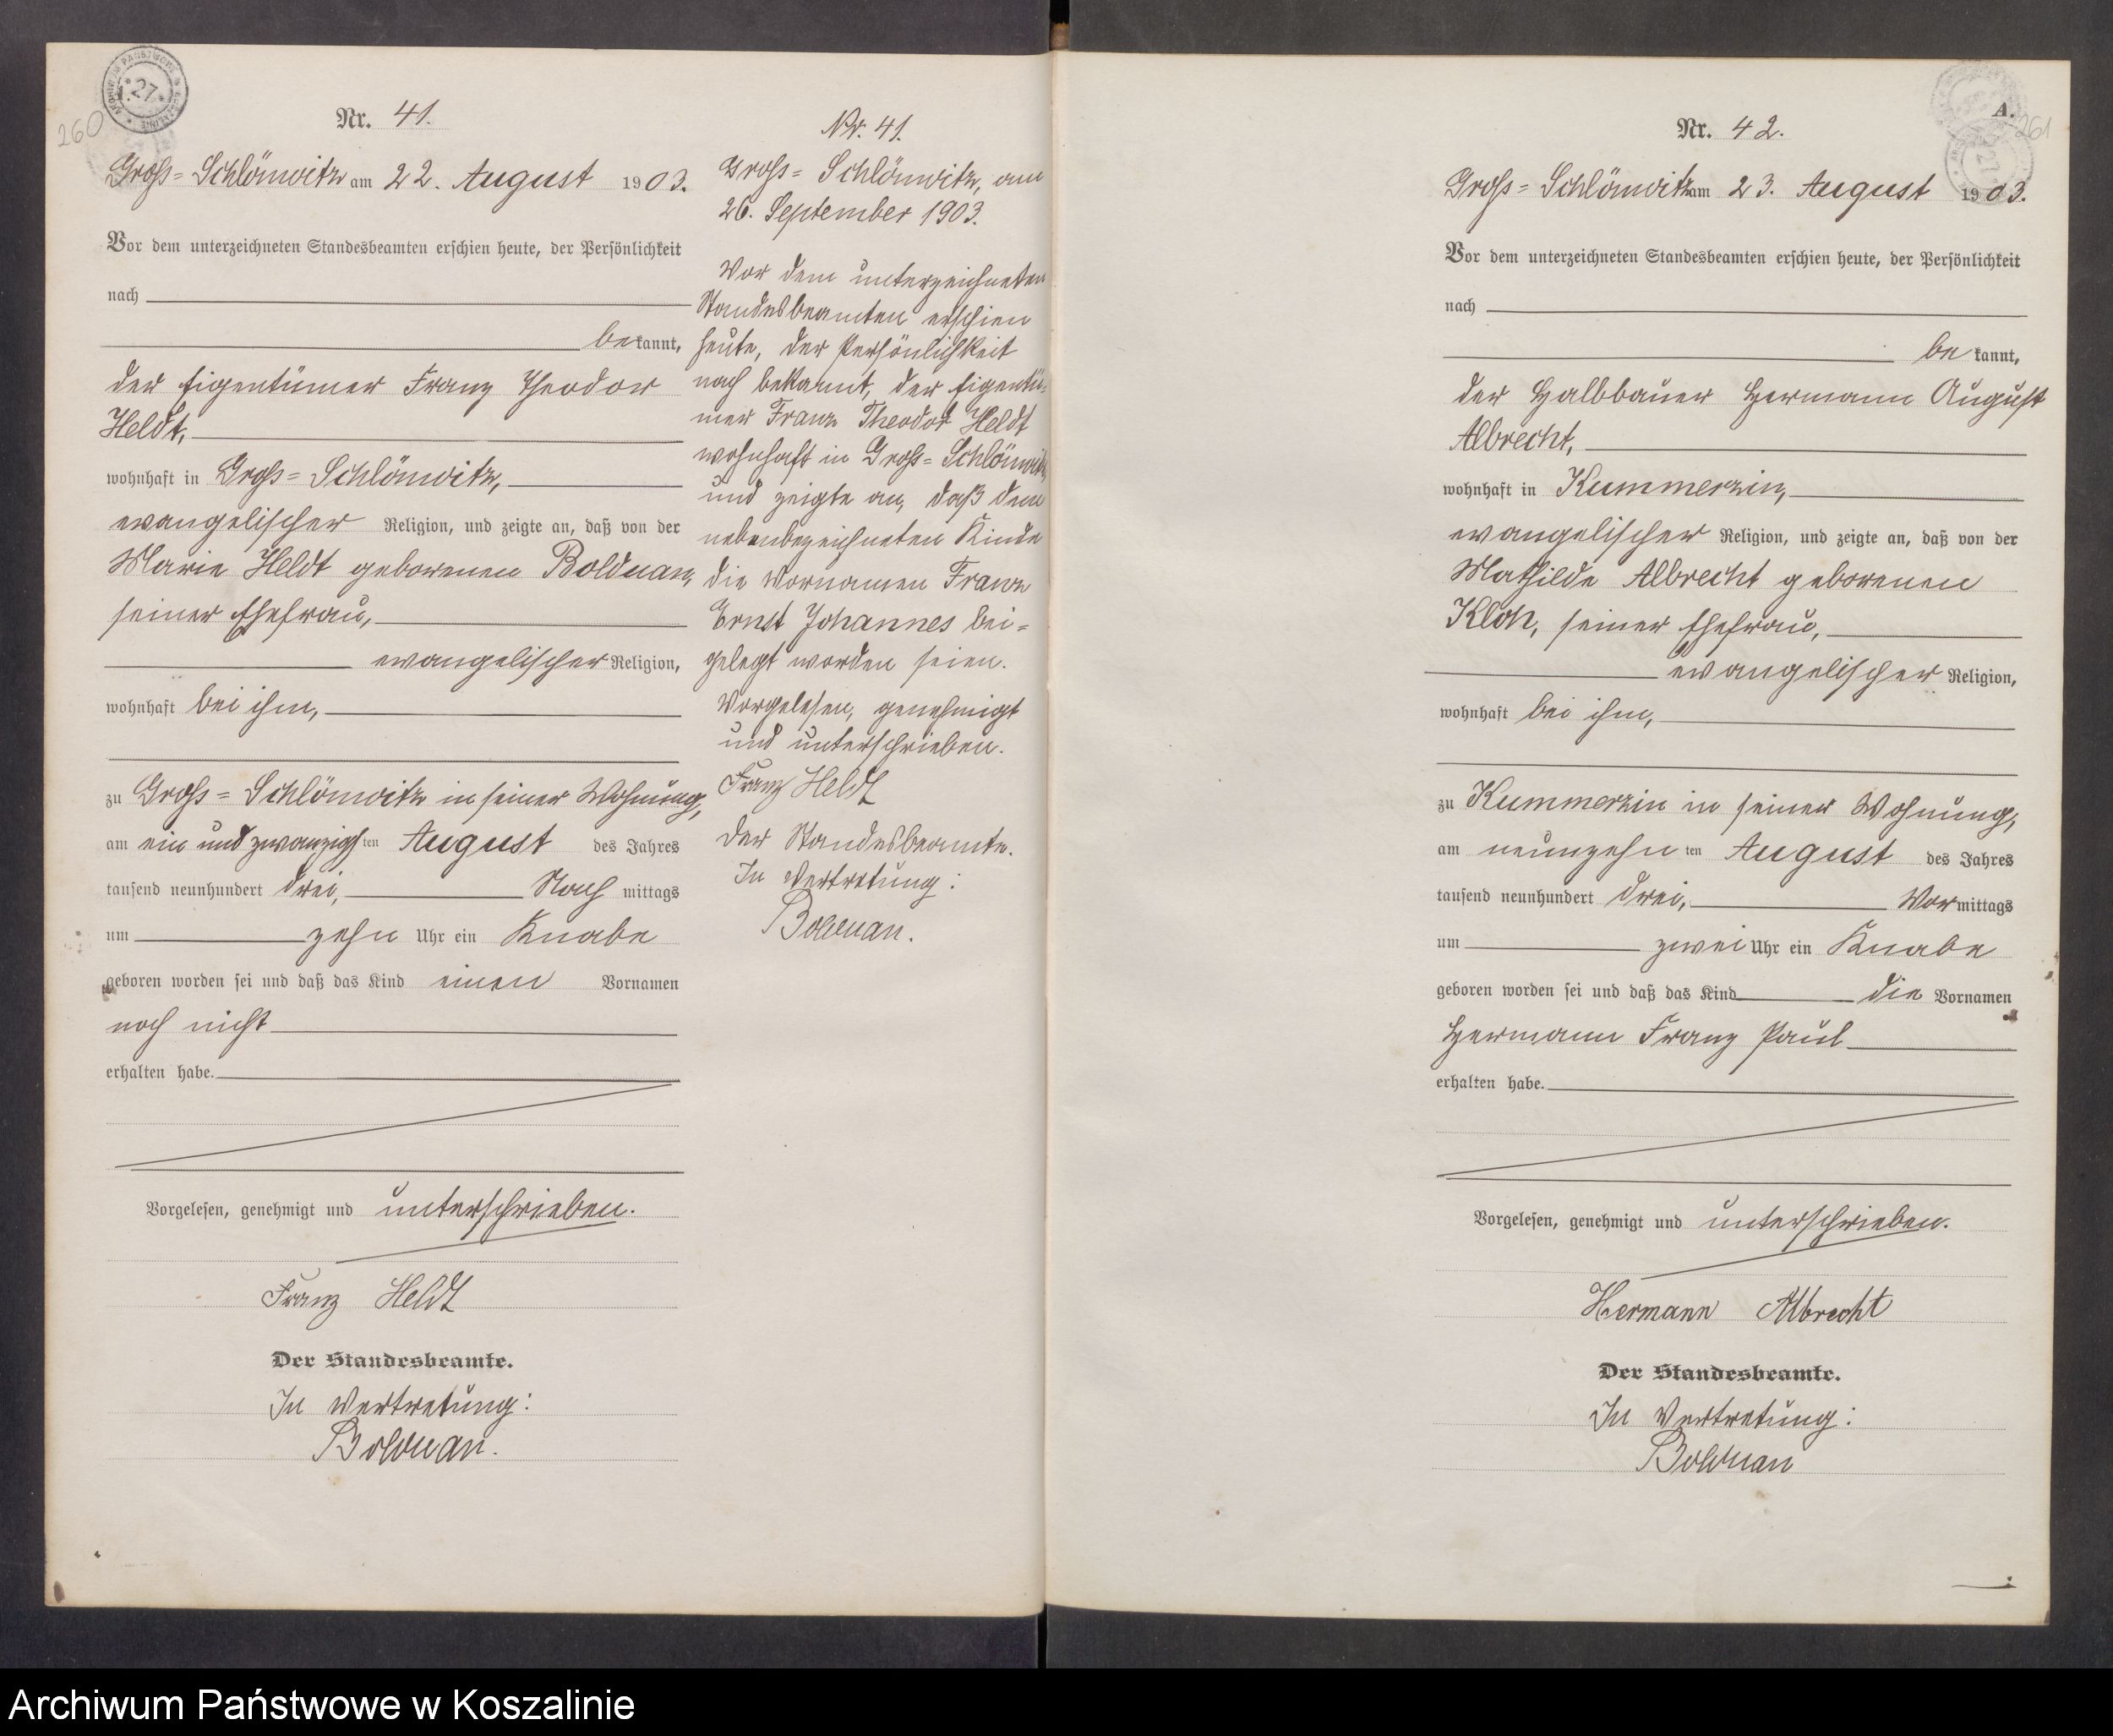 260
27
Nr. 41.
Gross=Schlönwitz am 22. August 1903.
Vor dem unterzeichneten Standesbeamten erschien heute, der Persönlichkeit
nach
bekannt,
der Eigentümer Franz Theodor
Heldt,
wohnhaft in Gross=Schlönwitz,
evangelischer Religion, und zeigte an, daß von der
Marie Heldt geborenen Bolduan,
seiner Ehefrau,
evangelischer Religion,
wohnhaft bei ihm,
zu Gross=Schlönwitz in seiner Wohnung,
am ein und zwanzigsten August des Jahres
tausend neunhundert drei, Nachmittags
um zehn Uhr ein Knabe
geboren worden sei und daß das Kind einen Vornamen
noch nicht
erhalten habe.
Vorgelesen, genehmigt und unterschrieben.
Franz Heldt
Der Standesbeamte.
In Vertretung:
Bolduan.
Nr. 41.
Gross=Schlönwitz, am
26. September 1903.
Vor dem unterzeichneten
Standesbeamten erschien
heute, der Persönlichkeit
nach bekannt, der Eigentü-
mer Franz Theodor Heldt
wohnhaft in Gross=Schlönwitz,
und zeigte an, daß dem
nebenbezeichneten Kinde
die Vornamen Franz
Ernst Johannes bei=
gelegt worden seien.
Vorgelesen, genehmigt
und unterschrieben.
Franz Heldt
Der Standesbeamte.
In Vertretung:
Bolduan.
A.
261
Nr. 42.
Gross=Schlönwitz am 23. August 1903.
Vor dem unterzeichneten Standesbeamten erschien heute, der Persönlichkeit
nach
bekannt,
der Halbbauer Hermann August
Albrecht,
wohnhaft in Kummerzin,
evangelischer Religion, und zeigte an, daß von der
Mathilde Albrecht geborenen
seiner Ehefrau,
evangelischer Religion,
wohnhaft bei ihm,
zu Kummerzin in seiner Wohnung,
am neunzehnten August des Jahres
tausend neunhundert drei, Vormittags
um zwei Uhr ein Knabe
geboren worden sei und daß das Kind die Vornamen
Hermann Franz Paul
erhalten habe.
Vorgelesen, genehmigt und unterschrieben.
Hermann Albrecht
Der Standesbeamte.
In Vertretung:
Bolduan
Archiwum Państwowe w Koszalinie